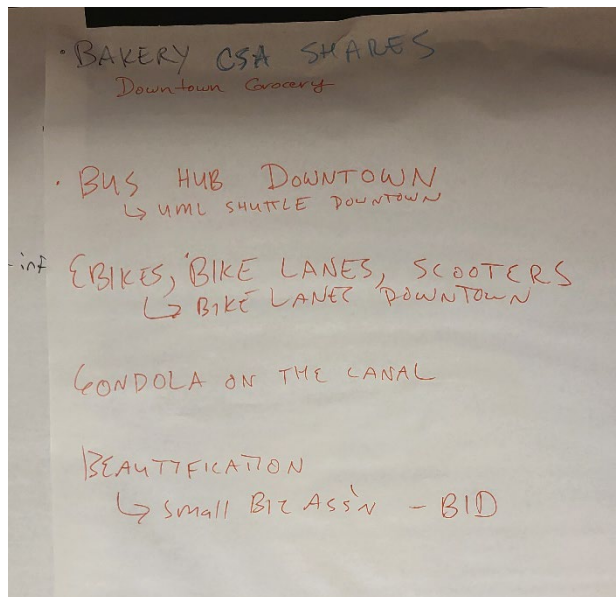 · BAKERY CSA SHARES
Downtown Grocery
· BUS HUB DOWNTOWN
↳ UML SHUTTLE DOWNTOWN
-inf EBIKES, BIKE LANES, SCOOTERS
↳ BIKE LANES DOWNTOWN
GONDOLA ON THE CANAL
BEAUTIFICATION
↳ Small BIZ ASS'N - BID